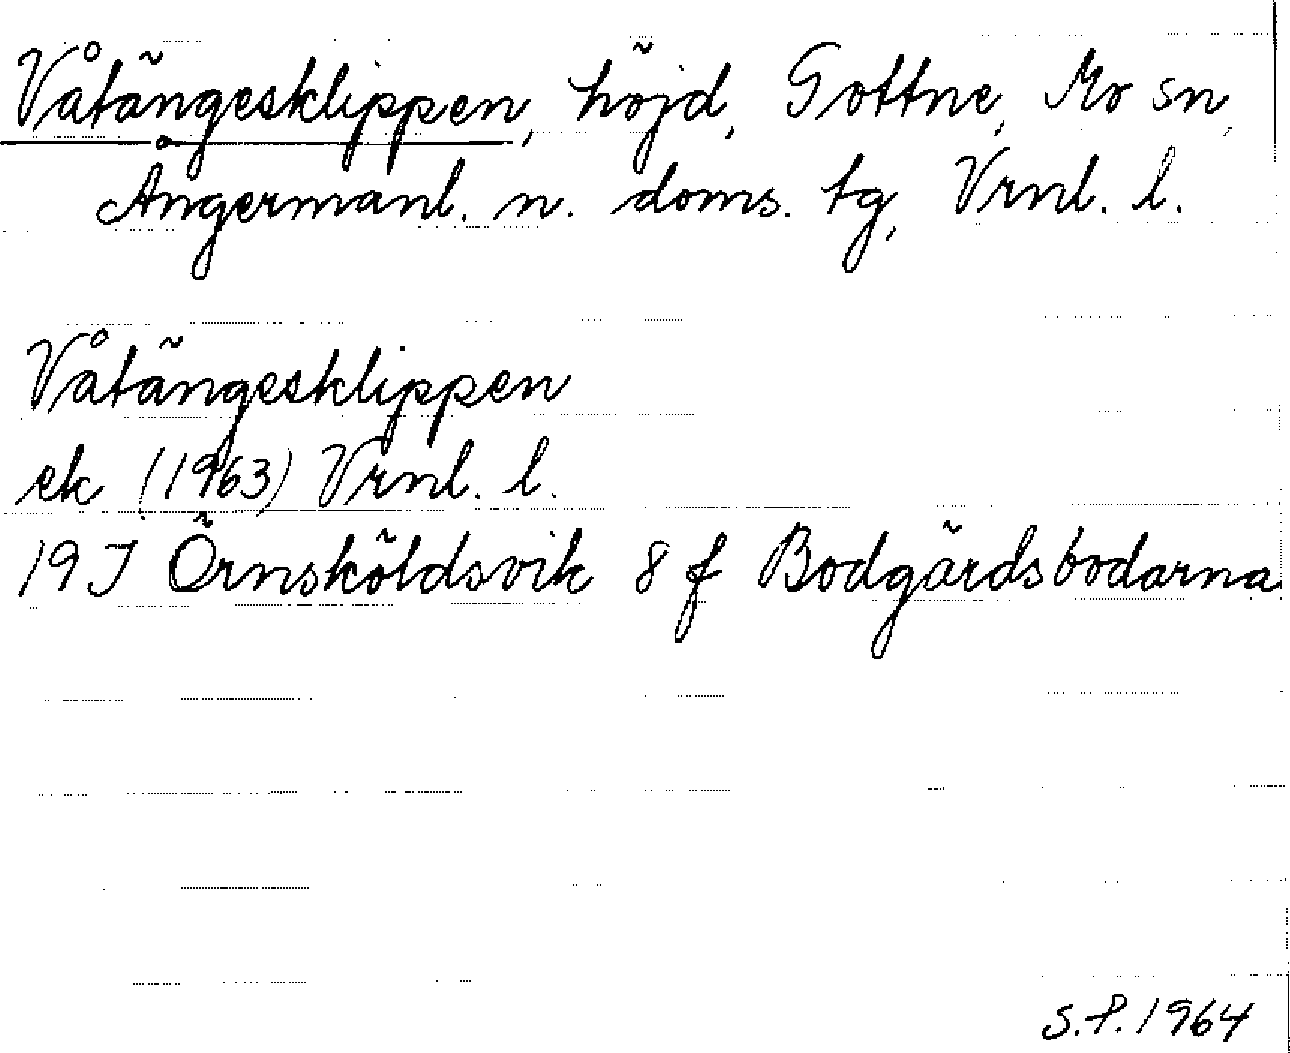 Våtängesklippen, höjd, Gottne, Mo sn,
Ångermanl. n. doms. tg, Vrnl. l.
Våtängesklippen
ek (1963) Vrnl. l.
19 J Örnsköldsvik 8 f Bodgärdsbodarna
S.P. 1964